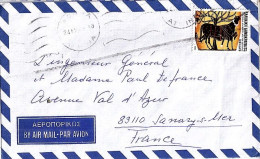 L'ingénieur Général
et Madame Paul Defrance
Avenue Val d'Azur
83110 Sanary s-Mer
France
ΑΕΡΟΠΟΡΙΚΩΣ
BY AIR MAIL-PAR AVION